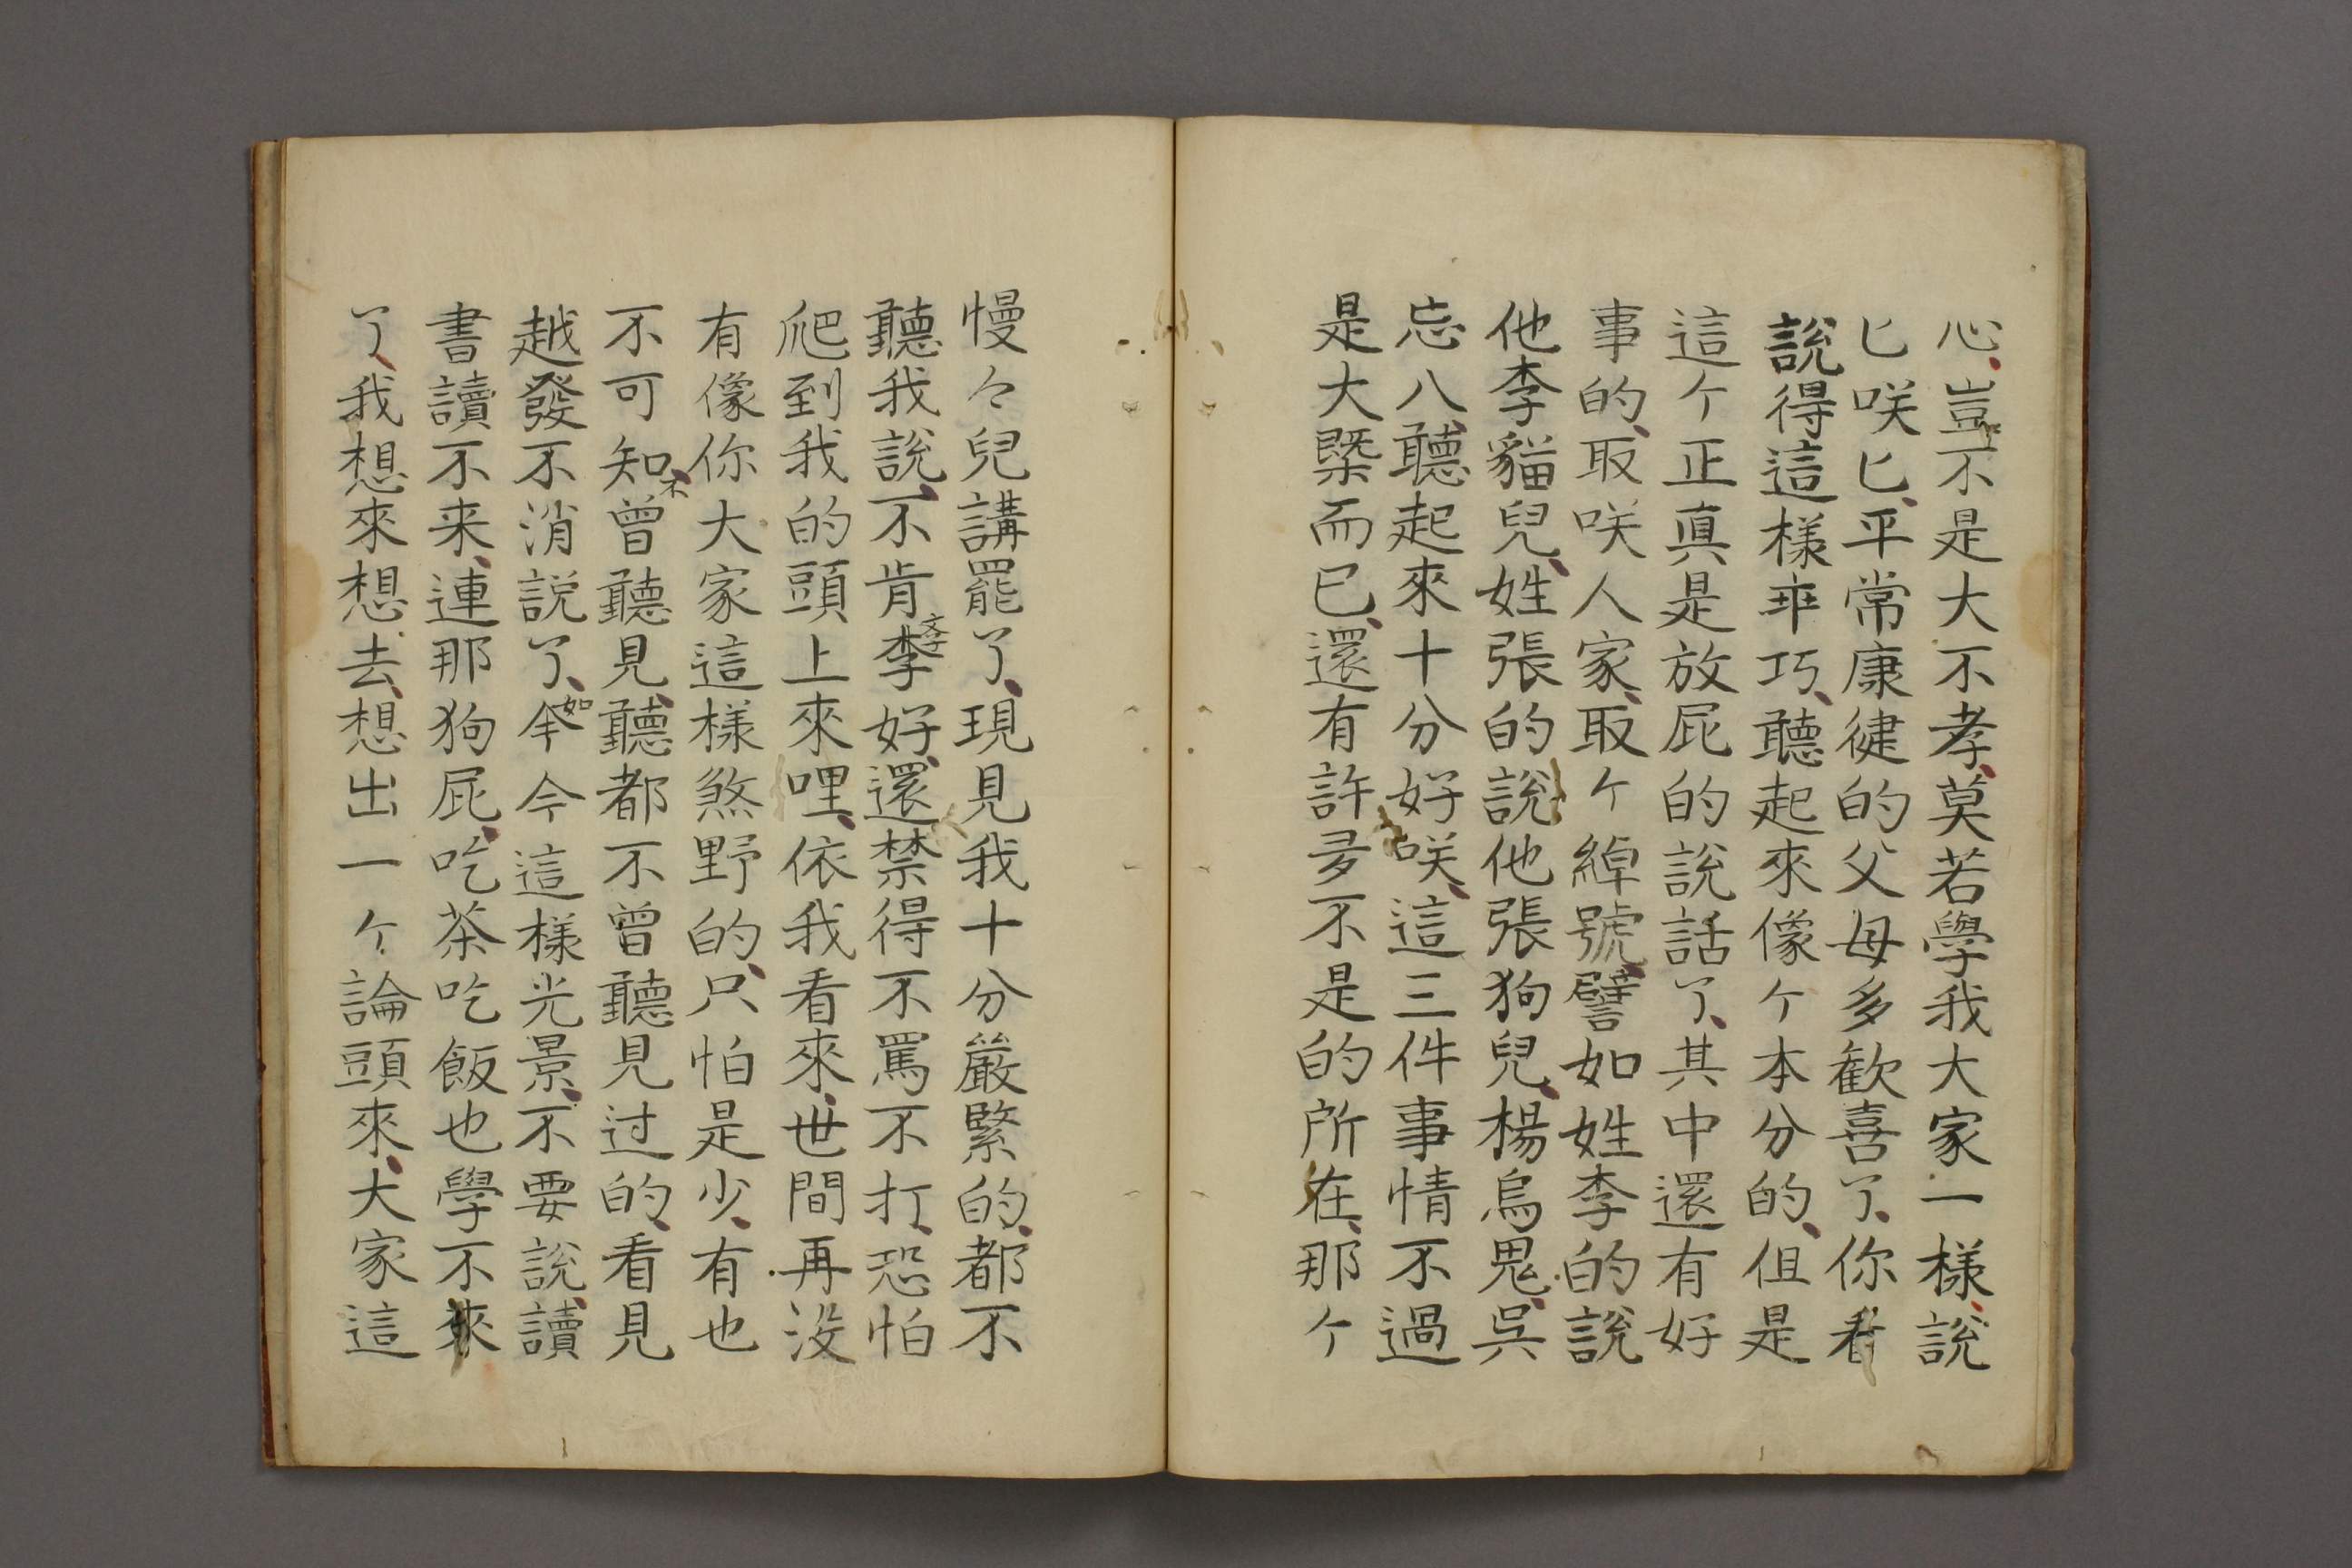 心、豈不是大不孝、莫若學我大家一樣、說
匕咲匕、平常康健的父母多歓喜了、你看
說得這樣乖巧、聽起來像ケ本分的、但是
這ケ正真是放屁的說話了、其中還有好
事的、取咲人家、取ケ綽號、譬如姓李的說
他李貓兒、姓張的說他張狗兒、楊烏鬼、吳
忘八、聽起來十分好咲、這三件事情不過
是大槩而已、還有許多不是的所在、那ケ
慢々兒講罷了、現見我十分嚴緊的、都不
聽我說、不肯李孝好、還禁得不罵不打、恐怕
爬到我的頭上來哩、依我看來、世間再没
有像你大家這樣煞野的、只怕是少、有也
不可知、不曾聽見、聽都不曾聽見过的、看見
越發不消説了、如今這樣光景、不要說、讀
書讀不来、連那狗屁、吃茶吃飯也學不來
了、我想來想去、想出一ケ論頭來、大家這